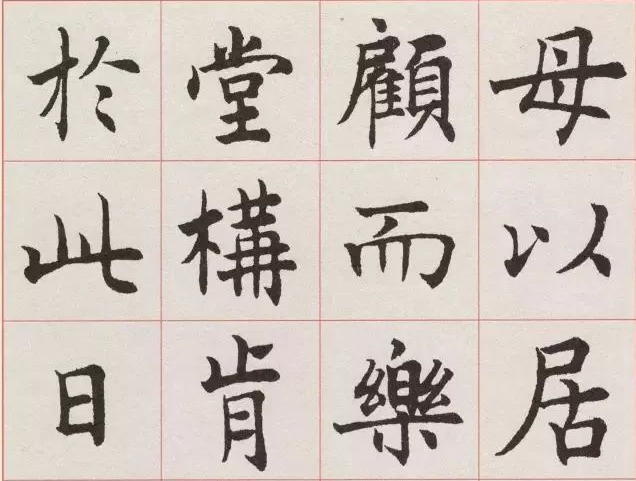 母以居
顧而樂
堂構肯
於此日